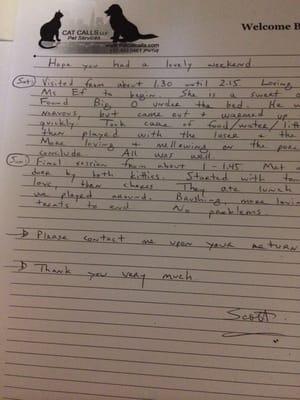 CAT CALLS LLC
Pet Services
www.catcalls.com
Welcome B
Hope you had a lovely weekend
Sat) Visited from about 1.30 until 2.15 Loving
Ms Ef to begin. She is a sweet
Found Big O under the bed. He w
nervous, but came out + warmed up
quickly. Took care of food/water/litt
then played with the laser + the
More loving + mellowing on the por
conclude All was well.
Sun) Final session from about 1-1.45 Met
door by both kitties. Started with to
love, then chores They ate lunch
we played around. Brushing, more lovin
treats to end No problems.
Please contact me upon your return
Thank you very much
Scott